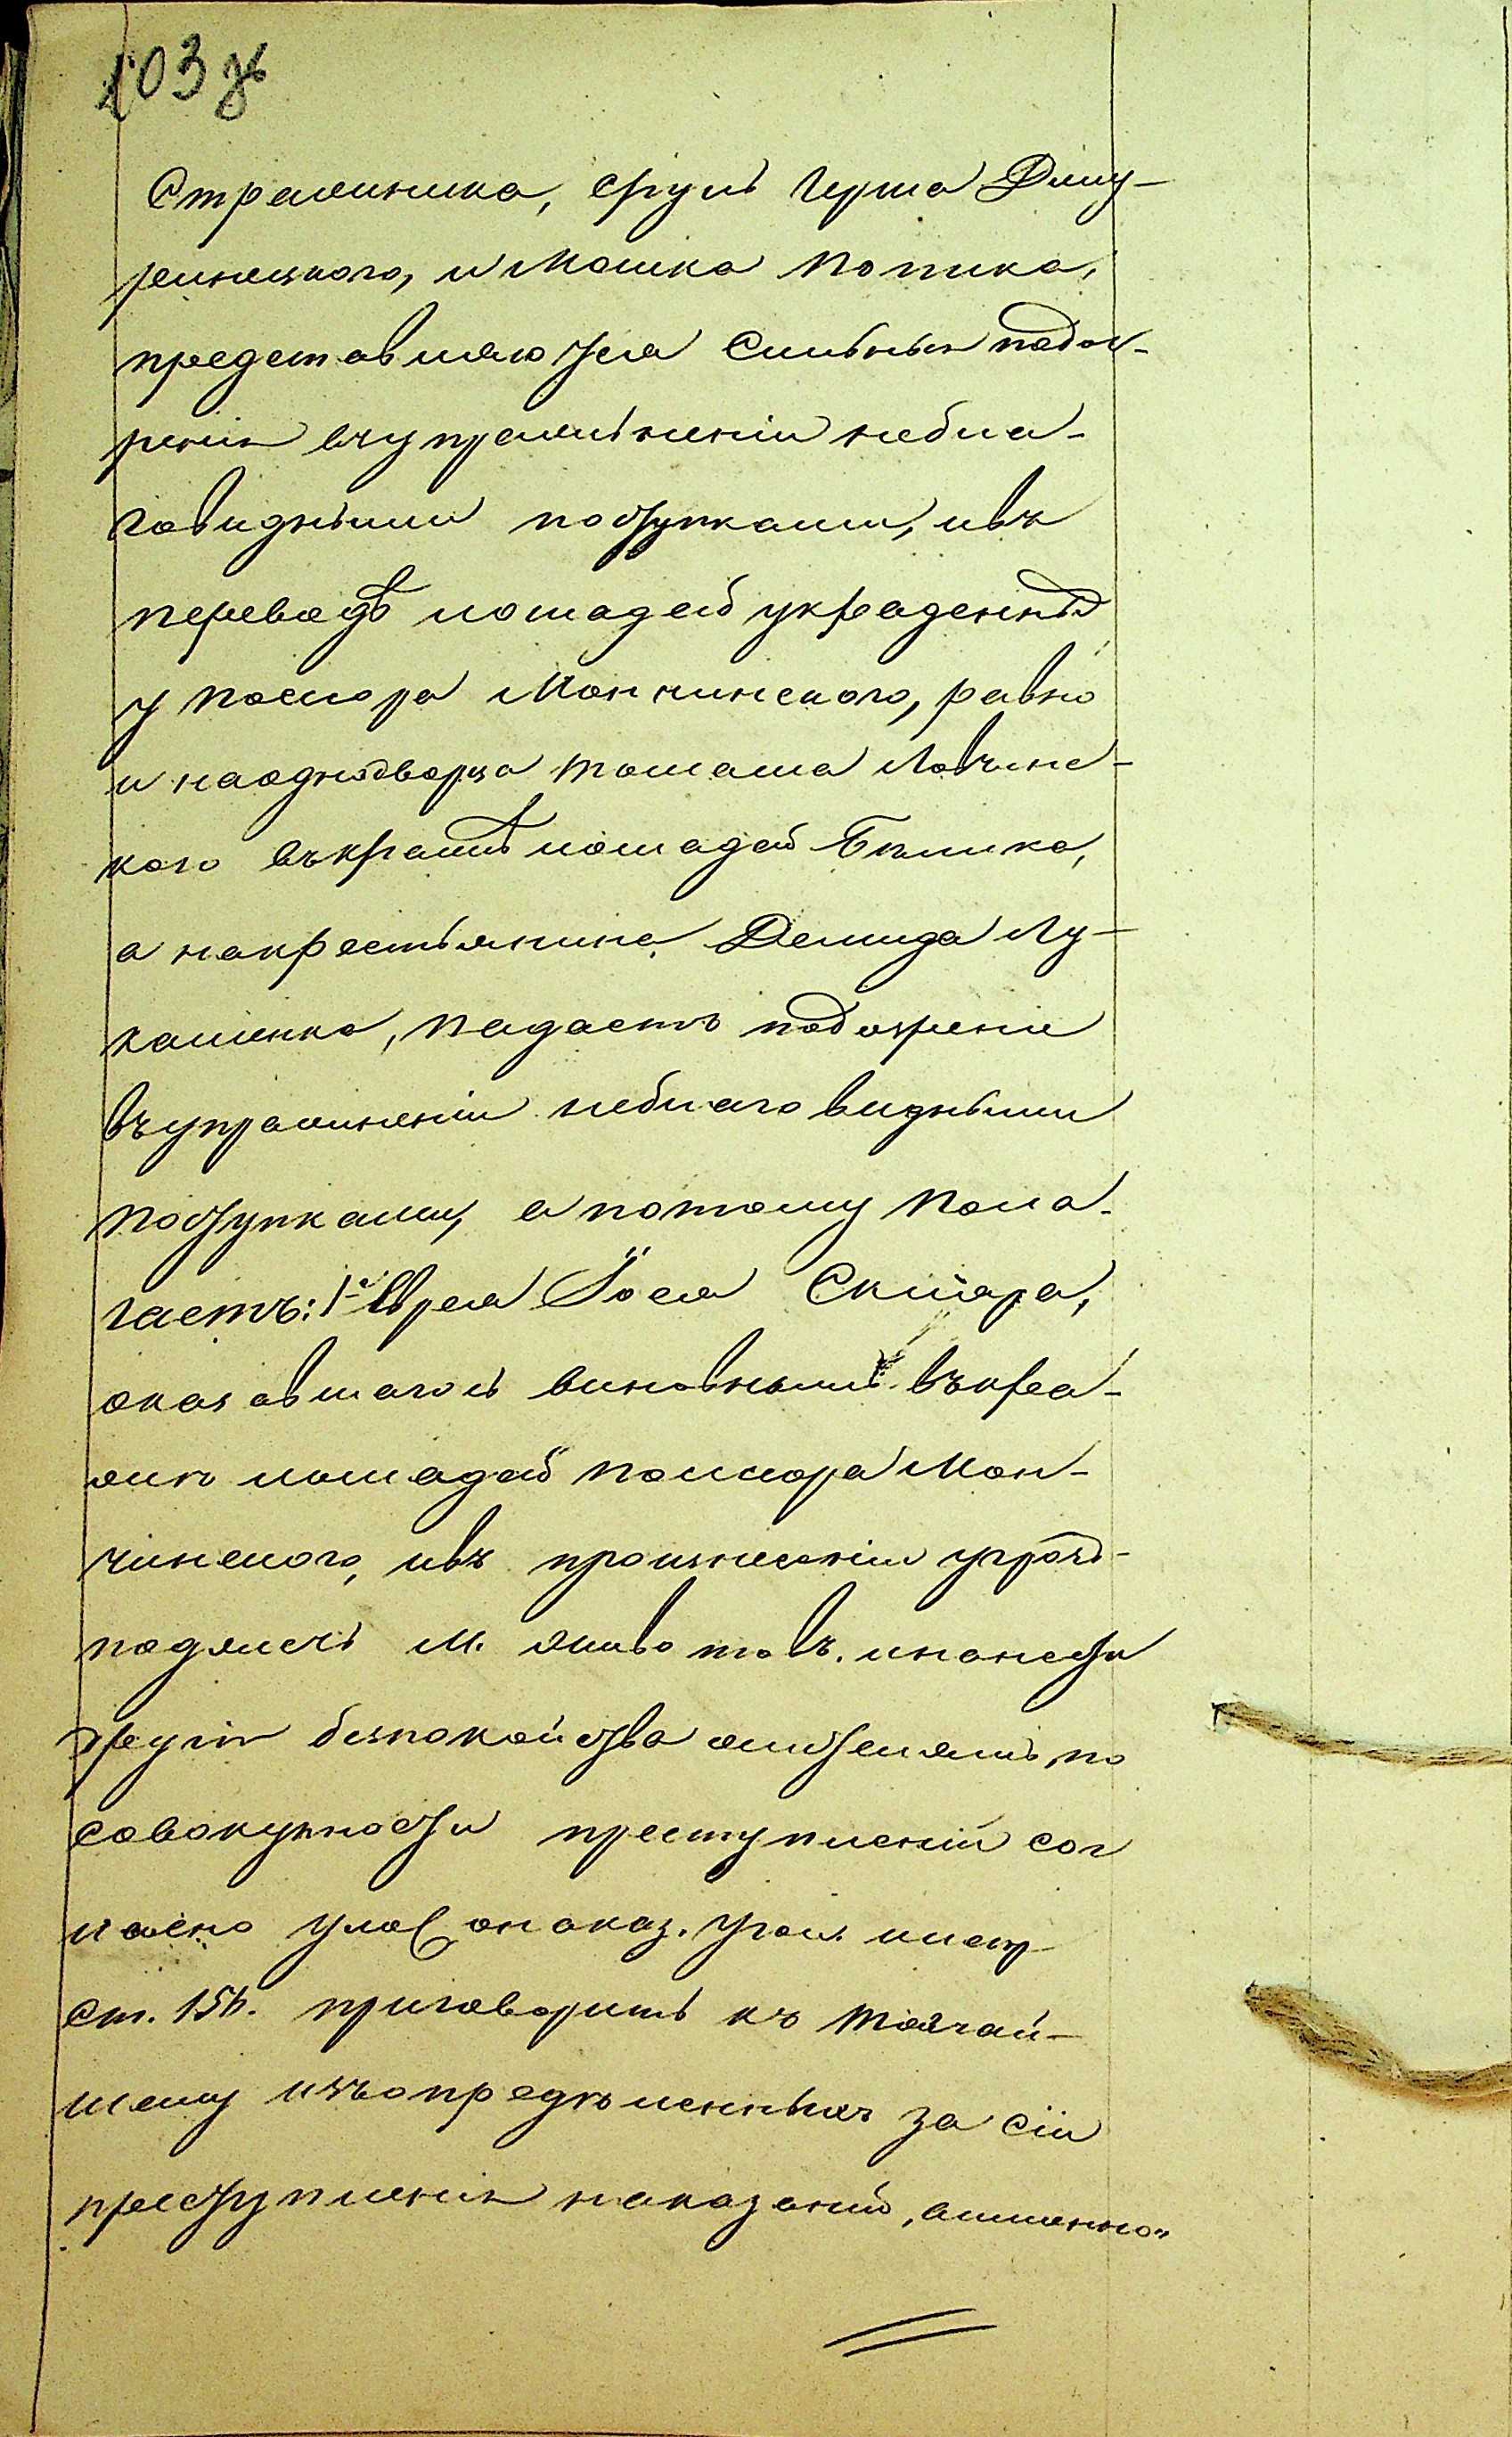 103
Стражника, Сруль Герша Дму-
ринецкого, и Мошка Попика,
представляются Сильныя подоз-
рения въупражненіи неблаг-
говидными поступками, ивъ
переводѣ лошадей украденныхъ
у посиора Мончинского, равно
и наоднодворца Томаша Лов
кого въкражѣ лошадей
а накрестьянина Демида Лу-
кашенка, падаетъ подозрение
въупражненіи неблаговидными
поступками, а потому пола-
гаетъ: 1е Еврея Іося Скляра,
оказавшагось виновнымъ въкра-
жи лошадей посиора Мон-
чинского, ивъ произнесеніи угрозъ
поджечь м. Животовъ. инанести
другія безпокойства жителямъ, по
совокупности преступленій сог
ласно улож онаказ. угол. и
ст. 156. приговорить къ тягчай-
шему изъопредѣленныхъ за сіи
преступленія наказаній, аименно"